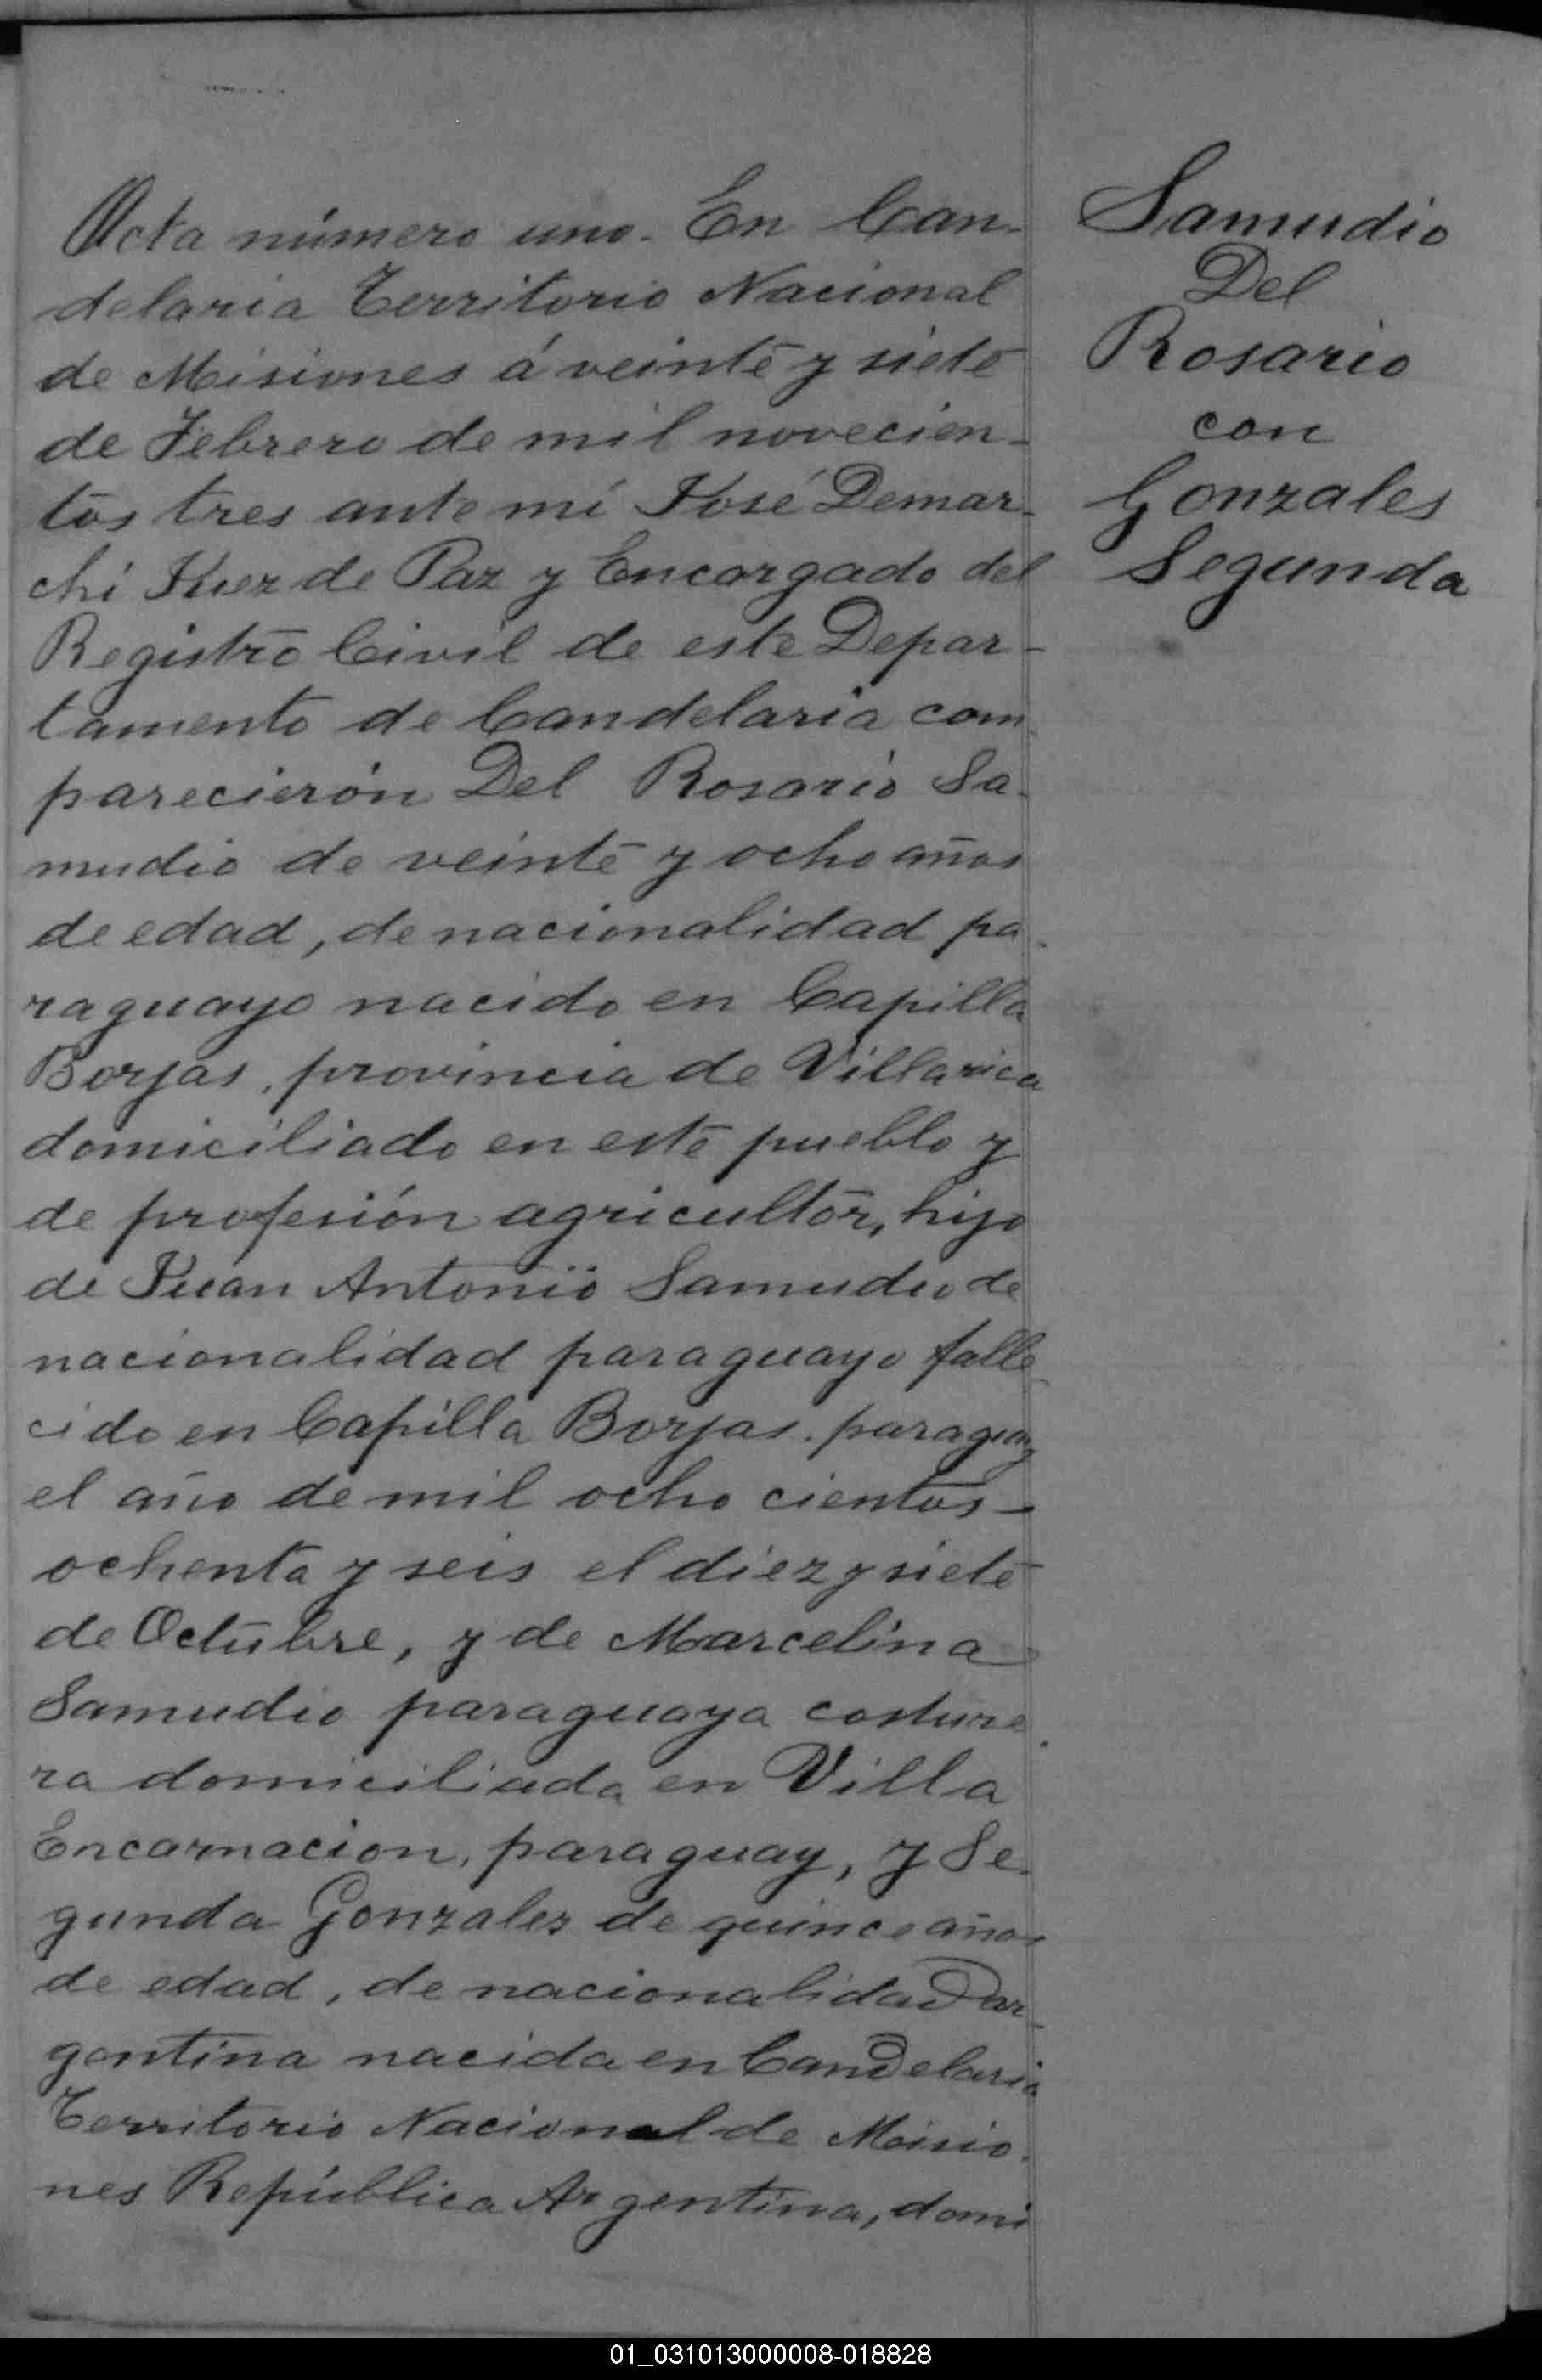 Acta número uno. En Can-
delaria Territorio Nacional
de Misiones á veinte y siete
de Febrero de mil novecien-
tos tres ante mí José Demar-
chi Juez de Paz y Encargado del
Registro Civil de este Depar-
tamento de Candelaria com
parecierón Del Rosario Sa-
mudio de veinte y ocho años
de edad, de nacionalidad pa-
raguayo nacido en Capilla
Borjas, provincia de Villarica
domiciliado en este pueblo y
de profesión agricultor, hijo
de Juan Antonio Samudio de
nacionalidad paraguayo falle
cido en Capilla Borjas. paraguay
el año de mil ocho cientos
ochenta y seis el diez y siete
de Octubre, y de Marcelina
Samudio paraguaya costure
ra domiciliada en Villa
Encarnacion, paraguay, y Se-
gunda Gonzales de quince años
de edad, de nacionalidad ar-
gentina nacida en Candelaria
Territorio Nacional de Misio-
nes República Argentina, domi
Samudio
Del
Rosario
con
Gonzales
Segunda
01_031013000008-018828